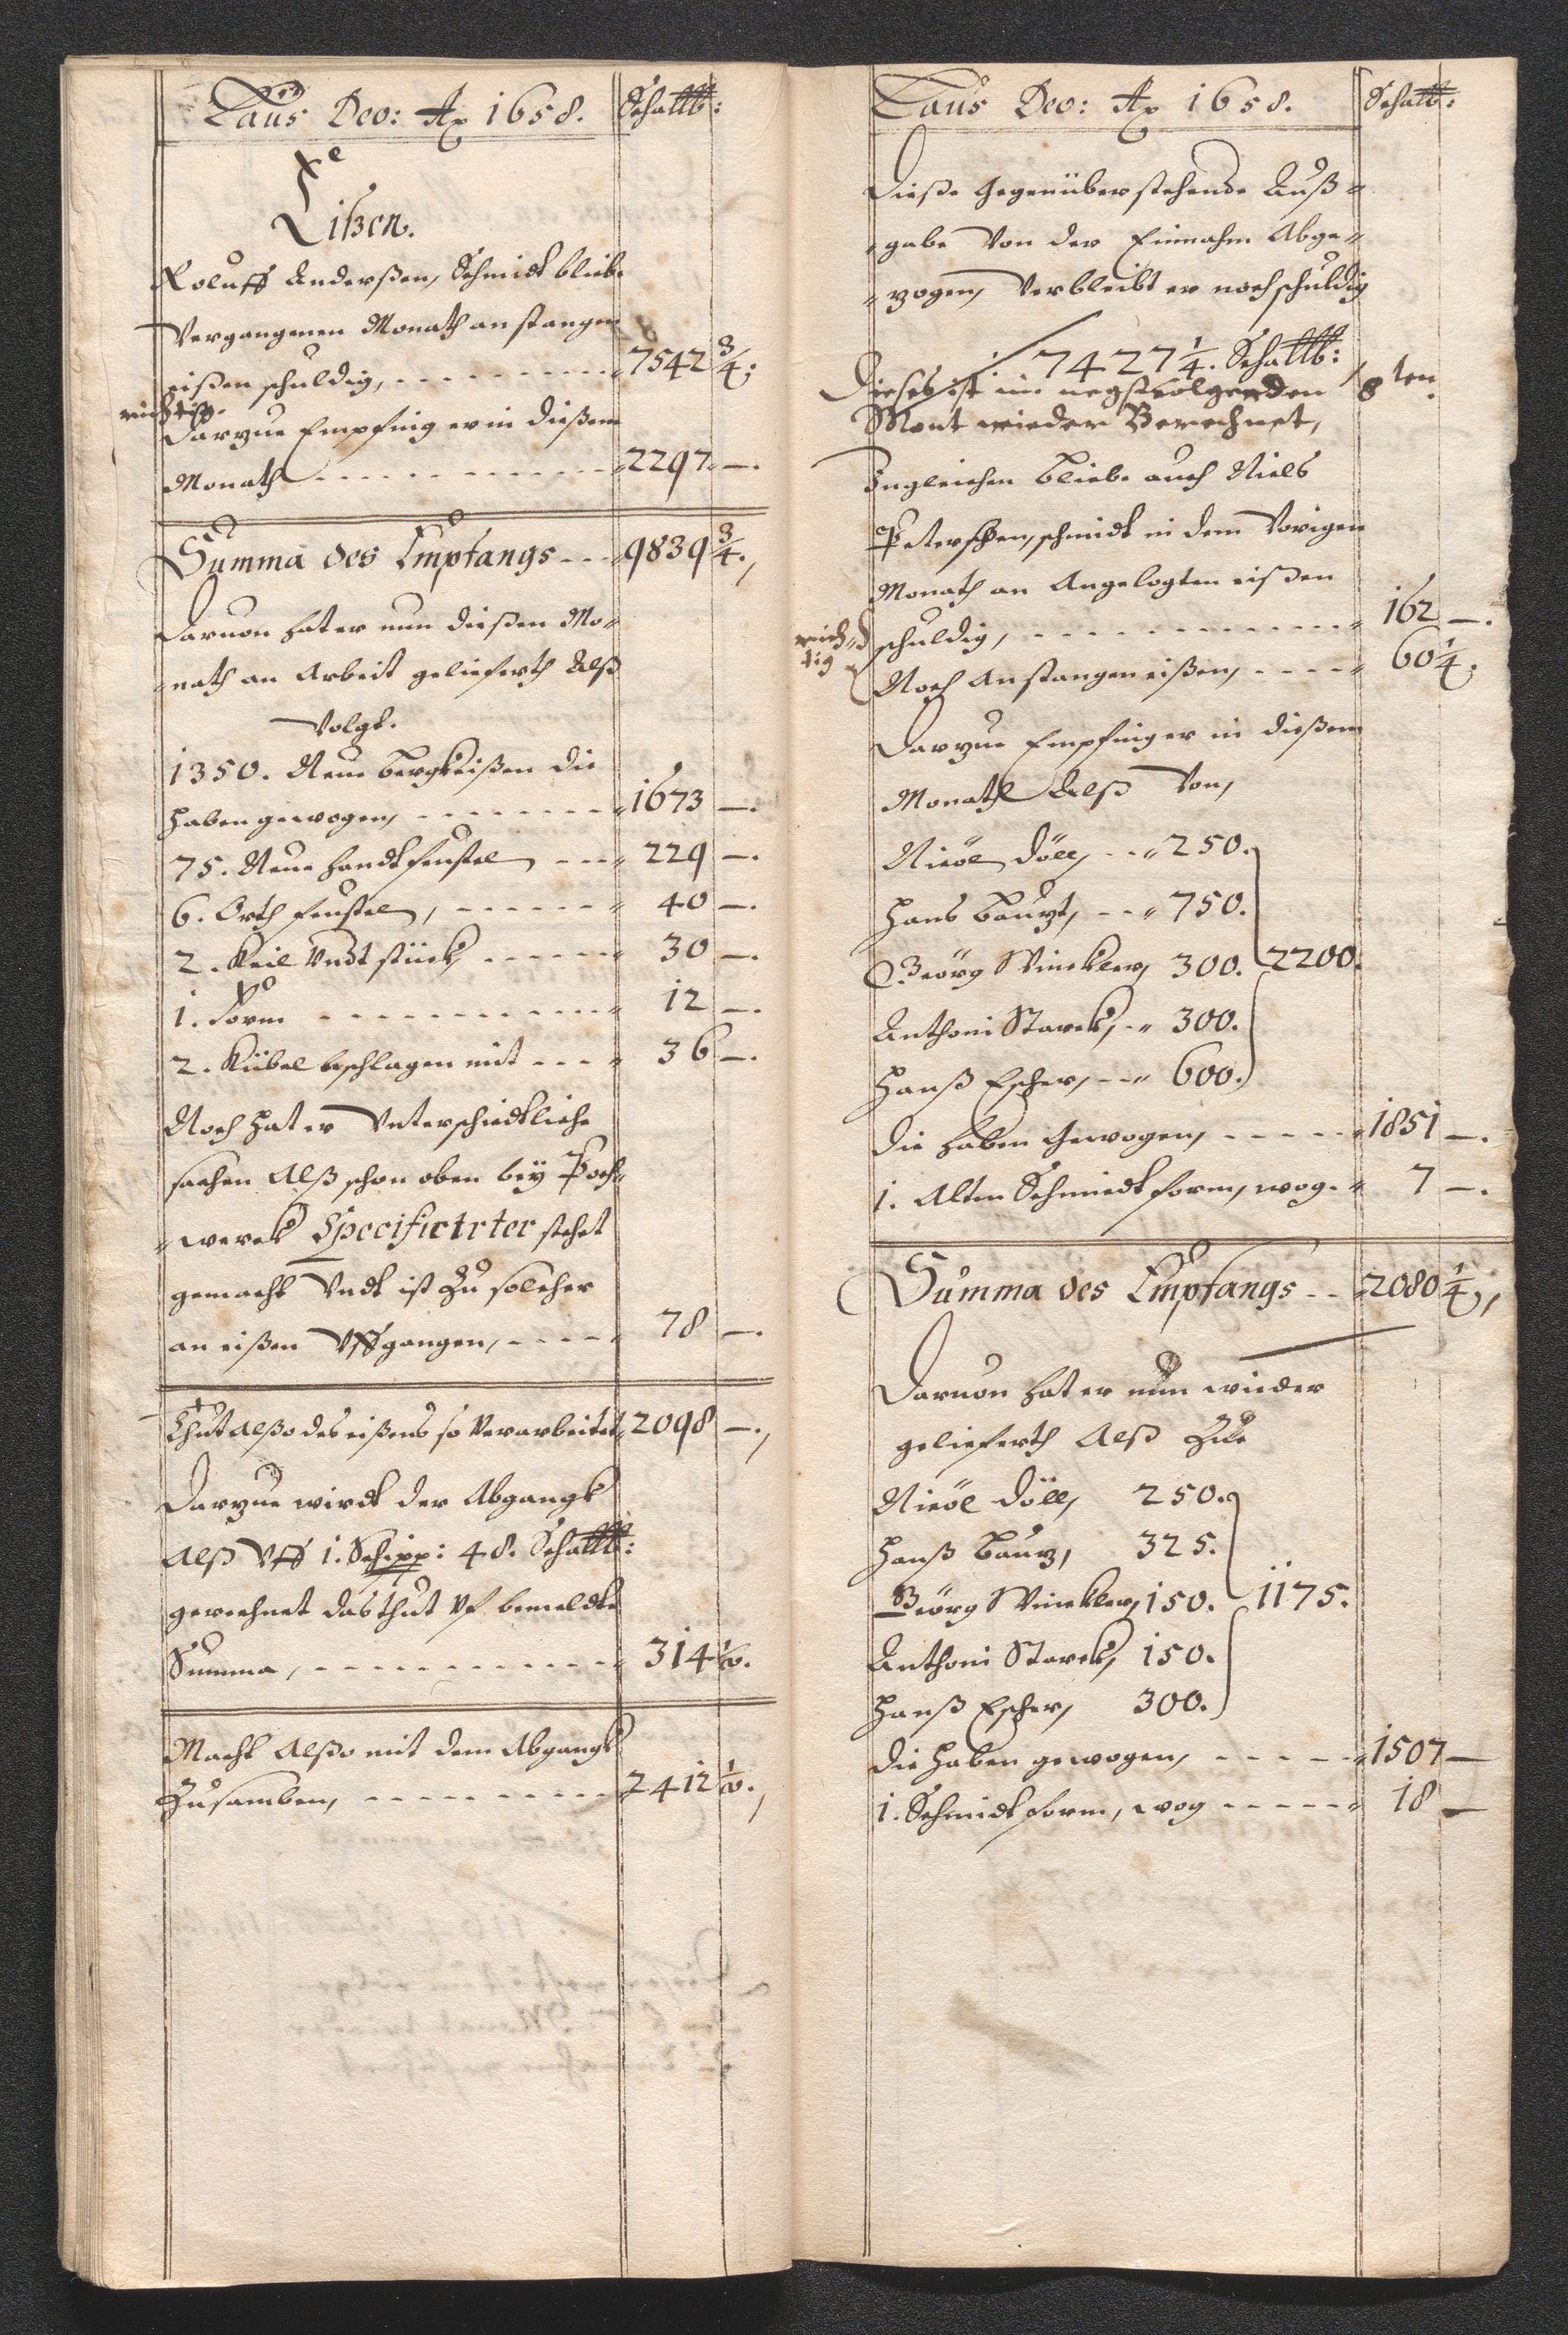 Laus Deo: Ao 1658. Schallb:
Eißen.
Roluff Anderßen, Schmidt bliebe
Vergangenen Monath an stangen
eißen schuldig, - - - 7542 3/4.
richtig.
Darzue Empfing er in dießem
Monath - - - 2297 —.
Summa des Empfangs - - - 9839 3/4.
Daruon hat er nun dießen Mo-
-nath an Arbeit geliefferth Alß
Volgt.
1350. Neue bergkeißen die
haben gewogen, - - - 1673 —.
75. Neue handtfeustel, - - - 229 —.
6. Orth feustel, - - - 40 —.
2. Keil Undt stück, - - - 30 —.
1. Form - - - 12 —.
2. Kübel beschlagen mit - - - 36 —.
Noch hat er Unterschiedtliche
sachen Alß schon oben beÿ Poch-
-werck Specificirter stehet
gemacht Undt ist Zu solcher
an eißen Uffgangen, - - - 78 —.
Thut Alßo des eißens so Verarbeitet 2098 —.
Darzue wirdt der Abgangk
Alß Uff 1. Schipp: 48. Schallb:
gerechnet das thut Uf bemeldte
Summa, - - - 314
Macht Alßo mit dem Abgangk
Zusamben, - - - 2412
Laus Deo: Ao 1658. Schallb:
Dieße gegenüberstehende Auß-
-gabe Von der Einnahm Abge-
-zogen, Verbleibt er noch schuldig
7427 1/4. Schallb:
Dieses ist im negstvolgenden 8ten
Mont wieder Berechnet,
Ingleichen bliebe auch Niels
Peterschen, schmidt in dem Vorigen
Monath an Angelegten eißen
schuldig, - - - 162 —.
richtig
Noch An stangen eißen, - - - 60 1/4.
Darzue Empfing er in dießem
Monath Alß Von,
Nicöl Döll, - - 250.
Hans Bautz, - - 750.
Geörg Winckler, 300. 2200.
Anthoni Starck, - 300.
Hanß Escher, - - 600.
die haben Gewogen, - - - 1851 —.
1. Alten Schmiedt form, wog. 7 —.
Summa des Empfangs - - 2080 1/4.
Daruon hat er nun wieder
geliefferth Alß Zue
Nicöl Döll, 250.
Hanß Bautz, 325.
Geörg Winckler, 150. 1175.
Anthoni Starck, 150.
Hanß Escher, 300.
die haben gewogen, - - - 1507 —
1. Schmidt form, wog - - - 18 —